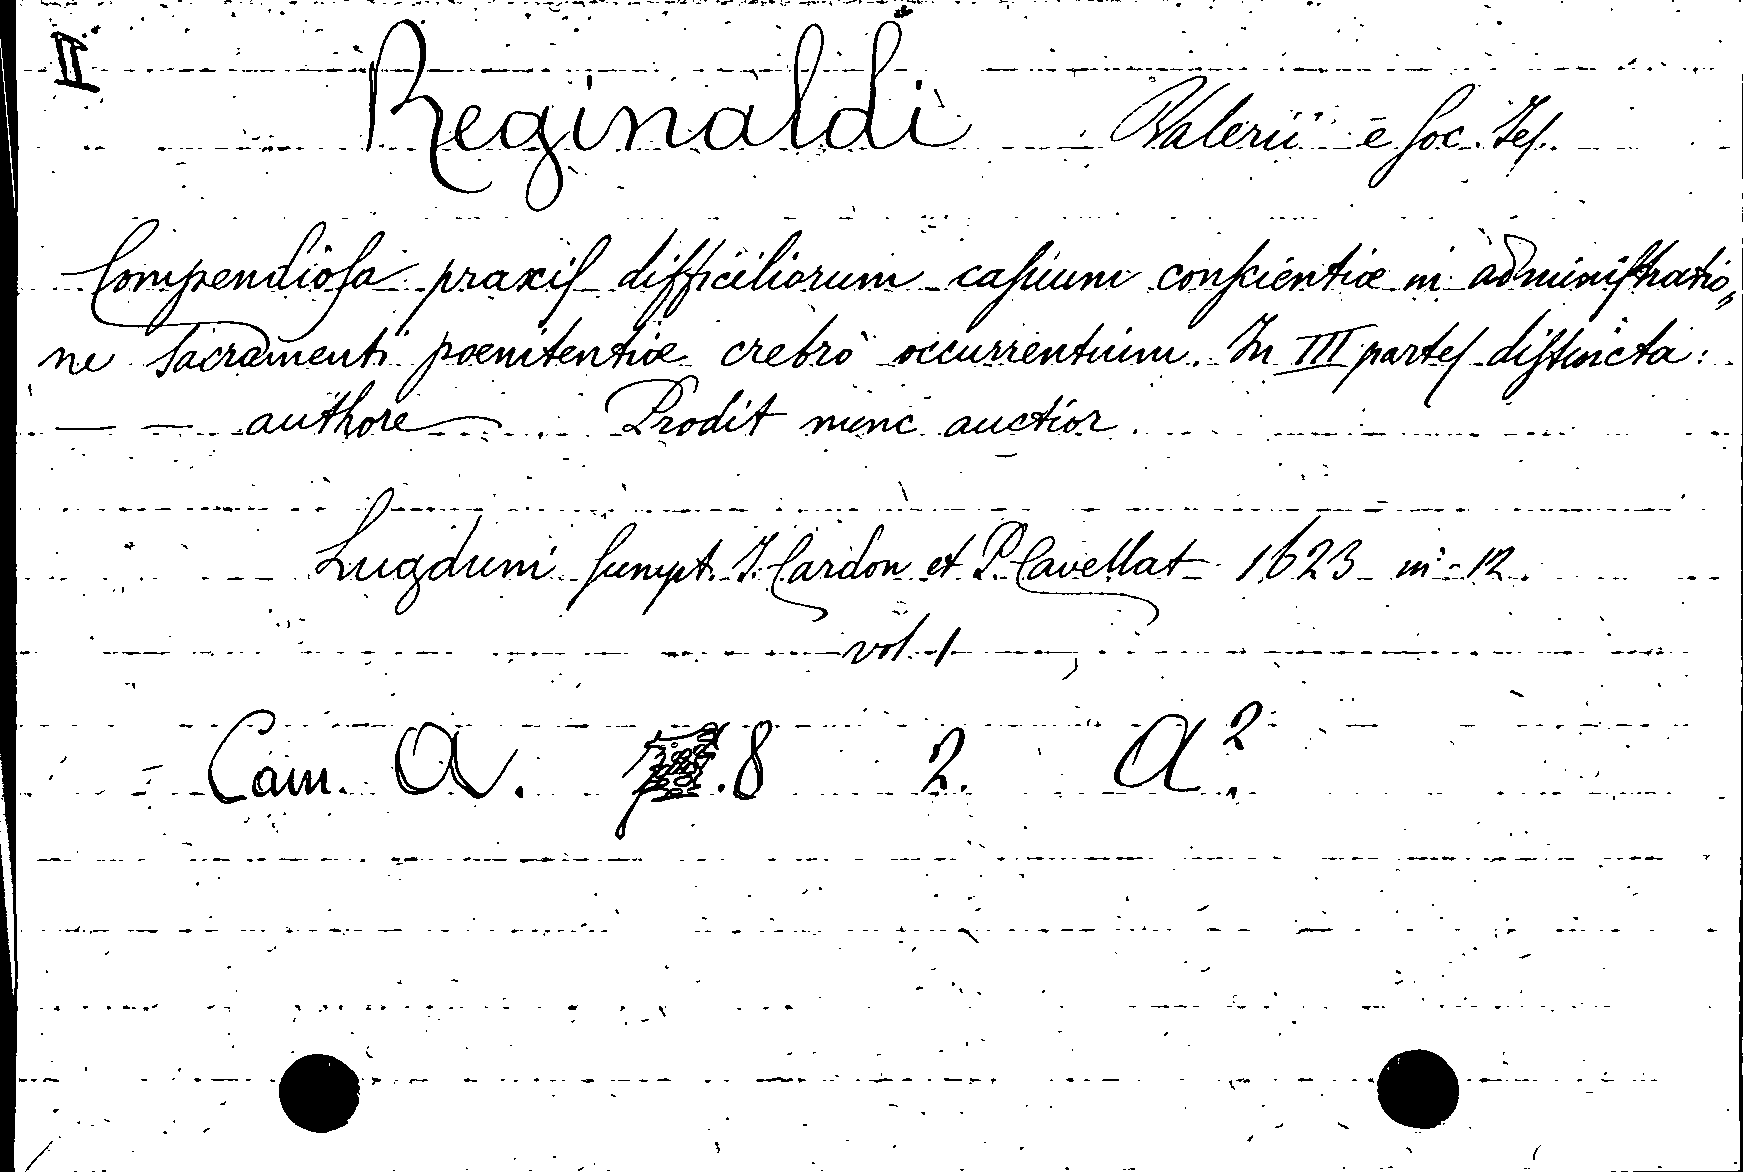 II
Reginaldi Valerii e Soc. Jes.
Compendiosa praxis difficiliorum casuum conscientiæ in administratio„
ne Sacramenti poenitentiæ crebrò occurrentium. In III partes distincta:
— — authore — Prodit nunc auctior.
Lugduni sumpt. J. Cardon et P. Cavellat 1623 in-12.
vol. 1
Cam. A. .8 2. A².